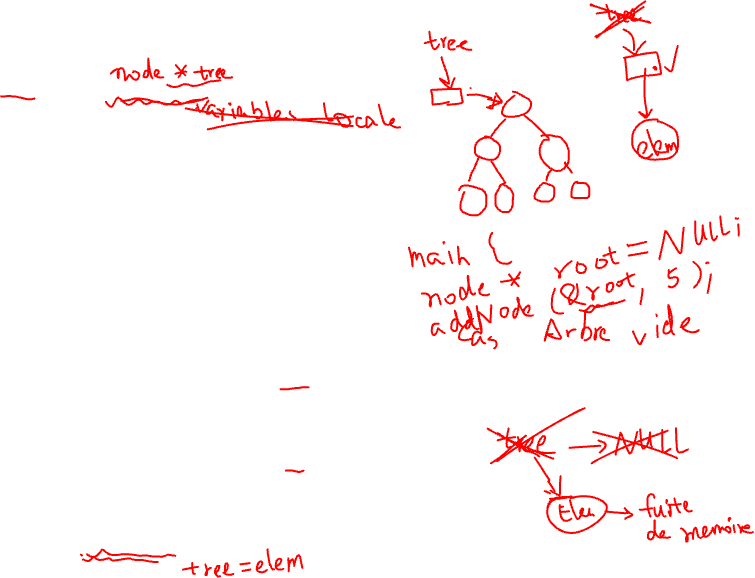 node * tree
variables locale
tree
tree
elem
main {
node * root = NULL;
addNode (&root, 5);
cas Arbre vide
tree → NULL
Elem → fuite
de memoire
tree = elem